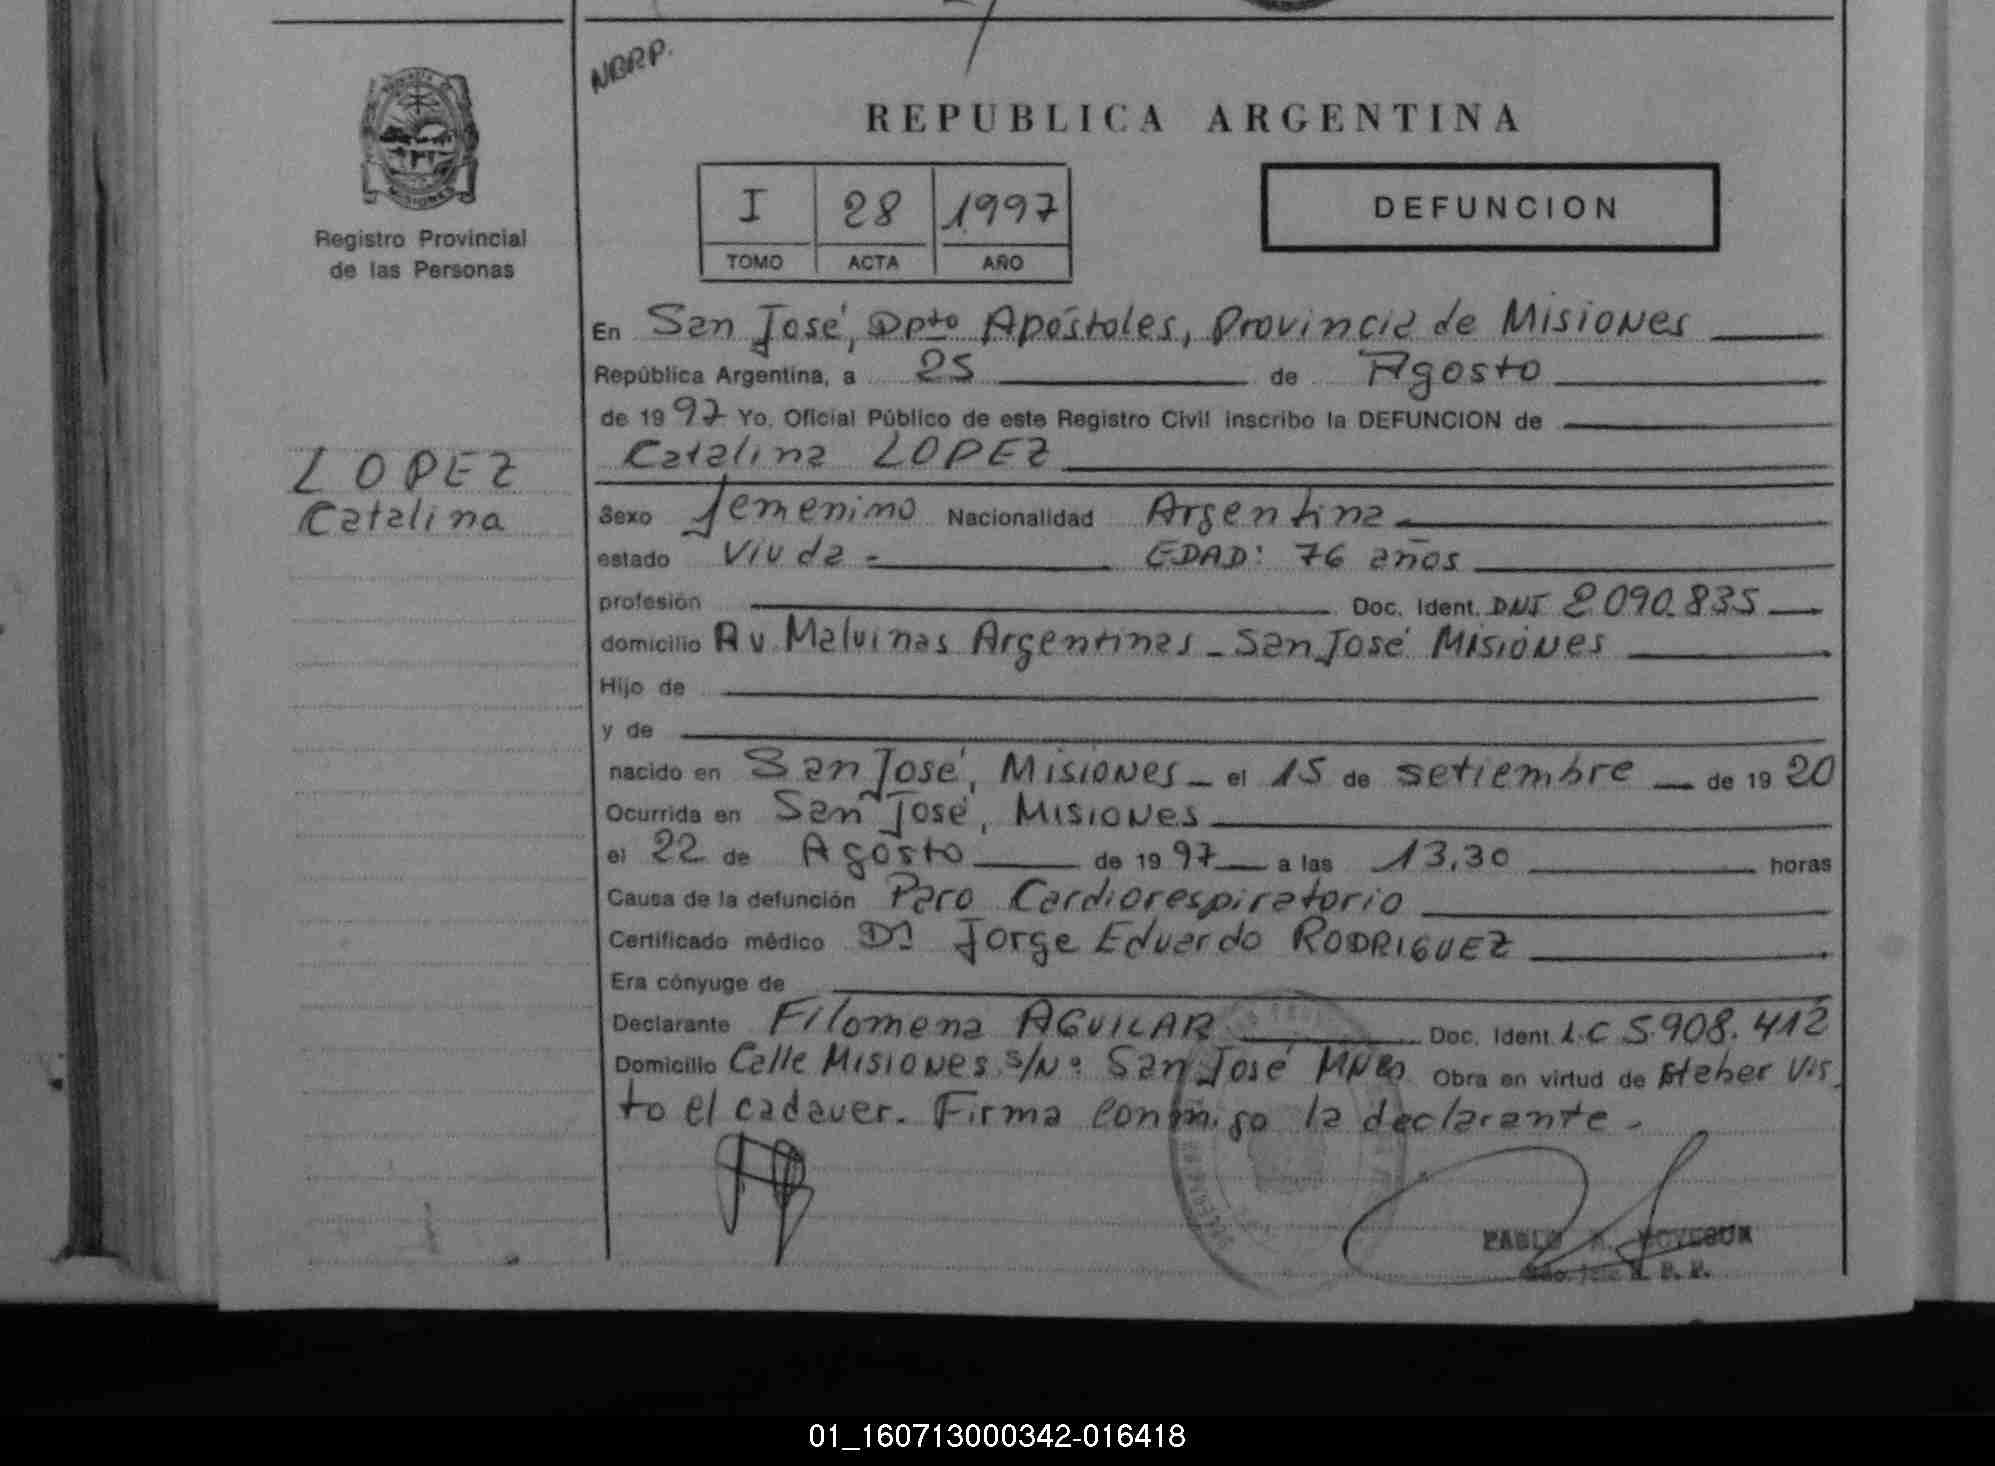 NBRP.
REPUBLICA ARGENTINA
I 28 1997
TOMO ACTA AÑO
DEFUNCION
MISIONES
Registro Provincial
de las Personas
LOPEZ
Catalina
En San José, Dpto Apóstoles, Provincia de Misiones
República Argentina, a 25 de Agosto
de 1997 Yo, Oficial Público de este Registro Civil inscribo la DEFUNCION de
Catalina LOPEZ
Sexo femenino Nacionalidad Argentina
estado Viuda - EDAD: 76 años
profesión Doc. Ident. DNI 2.090.835
domicilio Av. Malvinas Argentinas - San José Misiones
Hijo de
y de
nacido en San José, Misiones - el 15 de setiembre de 1920
Ocurrida en San José, Misiones
el 22 de Agosto de 1997 a las 13,30 horas
Causa de la defunción Paro Cardiorespiratorio
Certificado médico Dr Jorge Eduardo RODRIGUEZ
Era cónyuge de
Declarante Filomena AGUILAR Doc. Ident. L.C 5.908.412
Domicilio Calle Misiones s/Nº San José Mnes Obra en virtud de Haber vis
to el cadaver. Firma conmigo la declarante.
PABLO
01_160713000342-016418